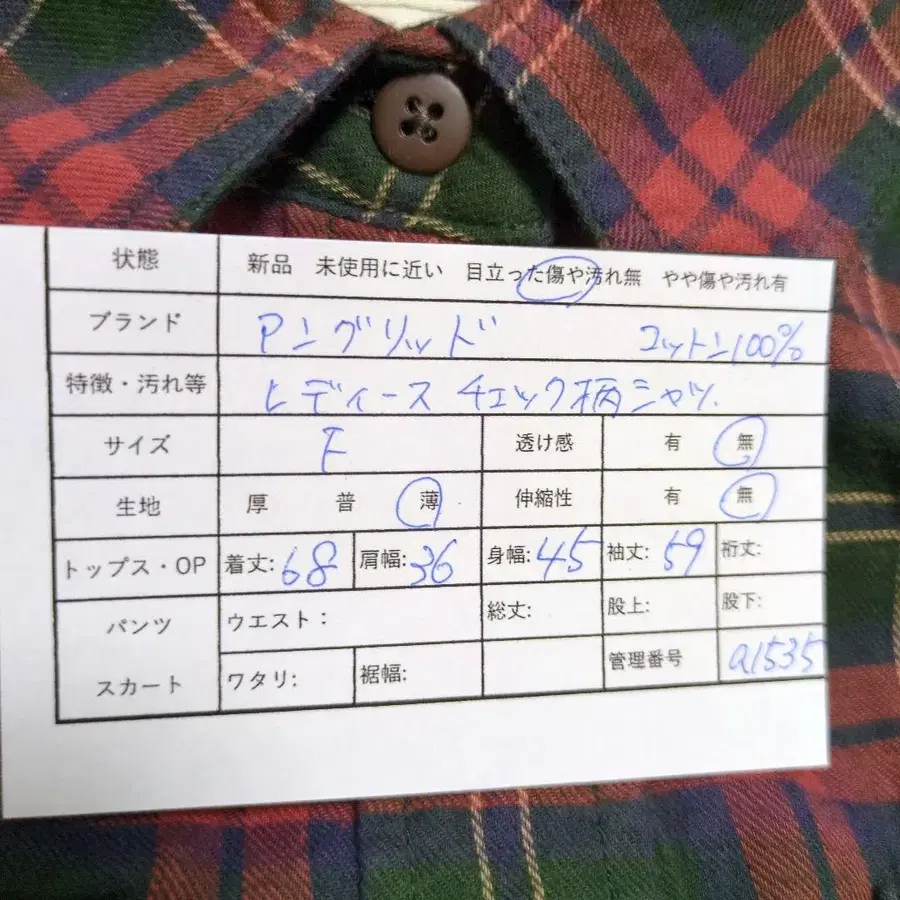 状態 新品 未使用に近い 目立った傷や汚れ無 やや傷や汚れ有
ブランド アングリッド コットン100%
特徴・汚れ等 レディース チェック柄シャツ.
サイズ F 透け感 有 無
生地 厚 普 薄 伸縮性 有 無
トップス・OP 着丈:68 肩幅:36 身幅:45 袖丈:59 裄丈:
パンツ ウエスト: 総丈: 股上: 股下:
スカート ワタリ: 裾幅: 管理番号 a1535